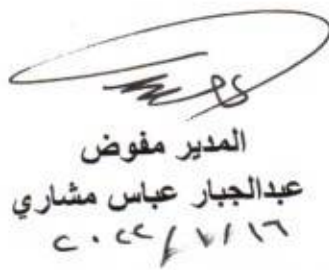 المدير مفوض
عبدالجبار عباس مشاري
٢٠٢٢/٧/١٦